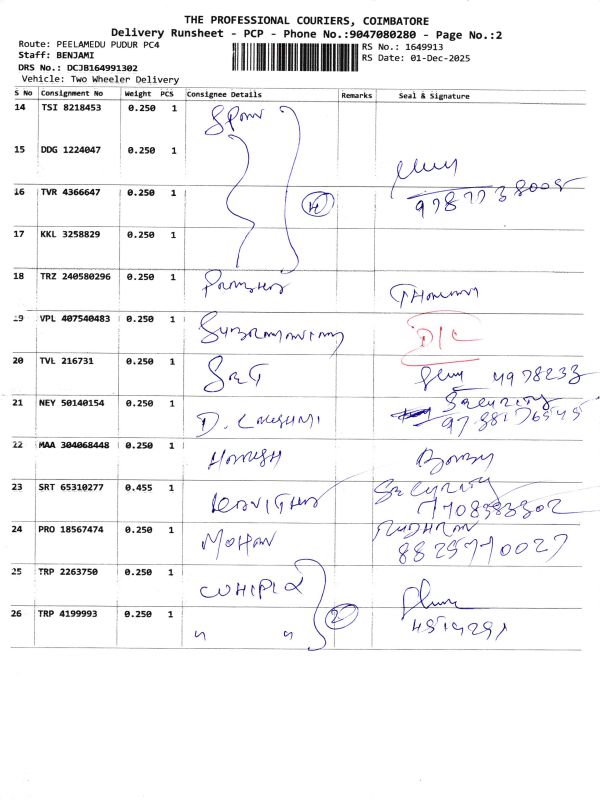 THE PROFESSIONAL COURIERS, COIMBATORE
Delivery Runsheet - PCP - Phone No.:9047080280 - Page No.:2
Route: PEELAMEDU PUDUR PC4 RS No.: 1649913
Staff: BENJAMI RS Date: 01-Dec-2025
DRS No.: DCJB164991302
Vehicle: Two Wheeler Delivery
S No Consignment No Weight PCS Consignee Details Remarks Seal & Signature
14 TSI 8218453 0.250 1
15 DDG 1224047 0.250 1
16 TVR 4366647 0.250 1
17 KKL 3258829 0.250 1
18 TRZ 240580296 0.250 1
19 VPL 407540483 0.250 1 D/C
20 TVL 216731 0.250 1 4978233
21 NEY 50140154 0.250 1 D. LAKSHMI Security
22 MAA 304068448 0.250 1
23 SRT 65310277 0.455 1 KAVITHA Security
24 PRO 18567474 0.250 1 MOHAN RUDHRAN
25 TRP 2263750 0.250 1
26 TRP 4199993 0.250 1 " " 2